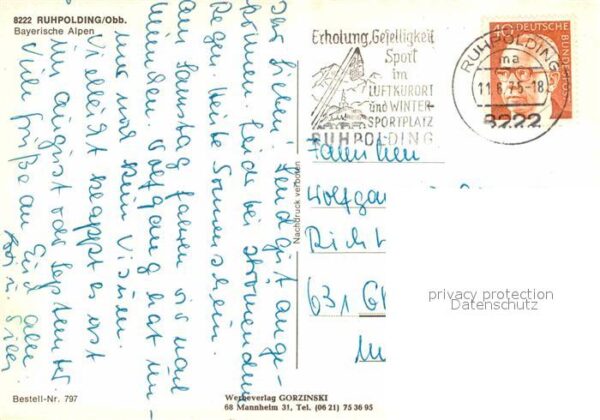 8222 RUHPOLDING/Obb.
Bayerische Alpen
Ihr Lieben! Sind gut ange-
kommen. Leider bei strömendem
Regen. Heute Sonnenschein.
Am Samstag fahren wir nach
Wolfgang hat im-
mer noch kein Visum.
Vielleicht klappt es erst
im August oder September
Viele Grüße an Euch alle
Erholung, Geselligkeit
Sport
im
LUFTKURORT
und WINTER-
SPORTPLATZ
RUHPOLDING
RUHPOLDING
ma
11.6.75-18
8222
40 DEUTSCHE BUNDESPOST
Familien
Wolfgan
Richt
631 G
Nachdruck verboten
privacy protection
Datenschutz
Bestell-Nr. 797
Werbeverlag GORZINSKI
68 Mannheim 31, Tel. (06 21) 75 36 95